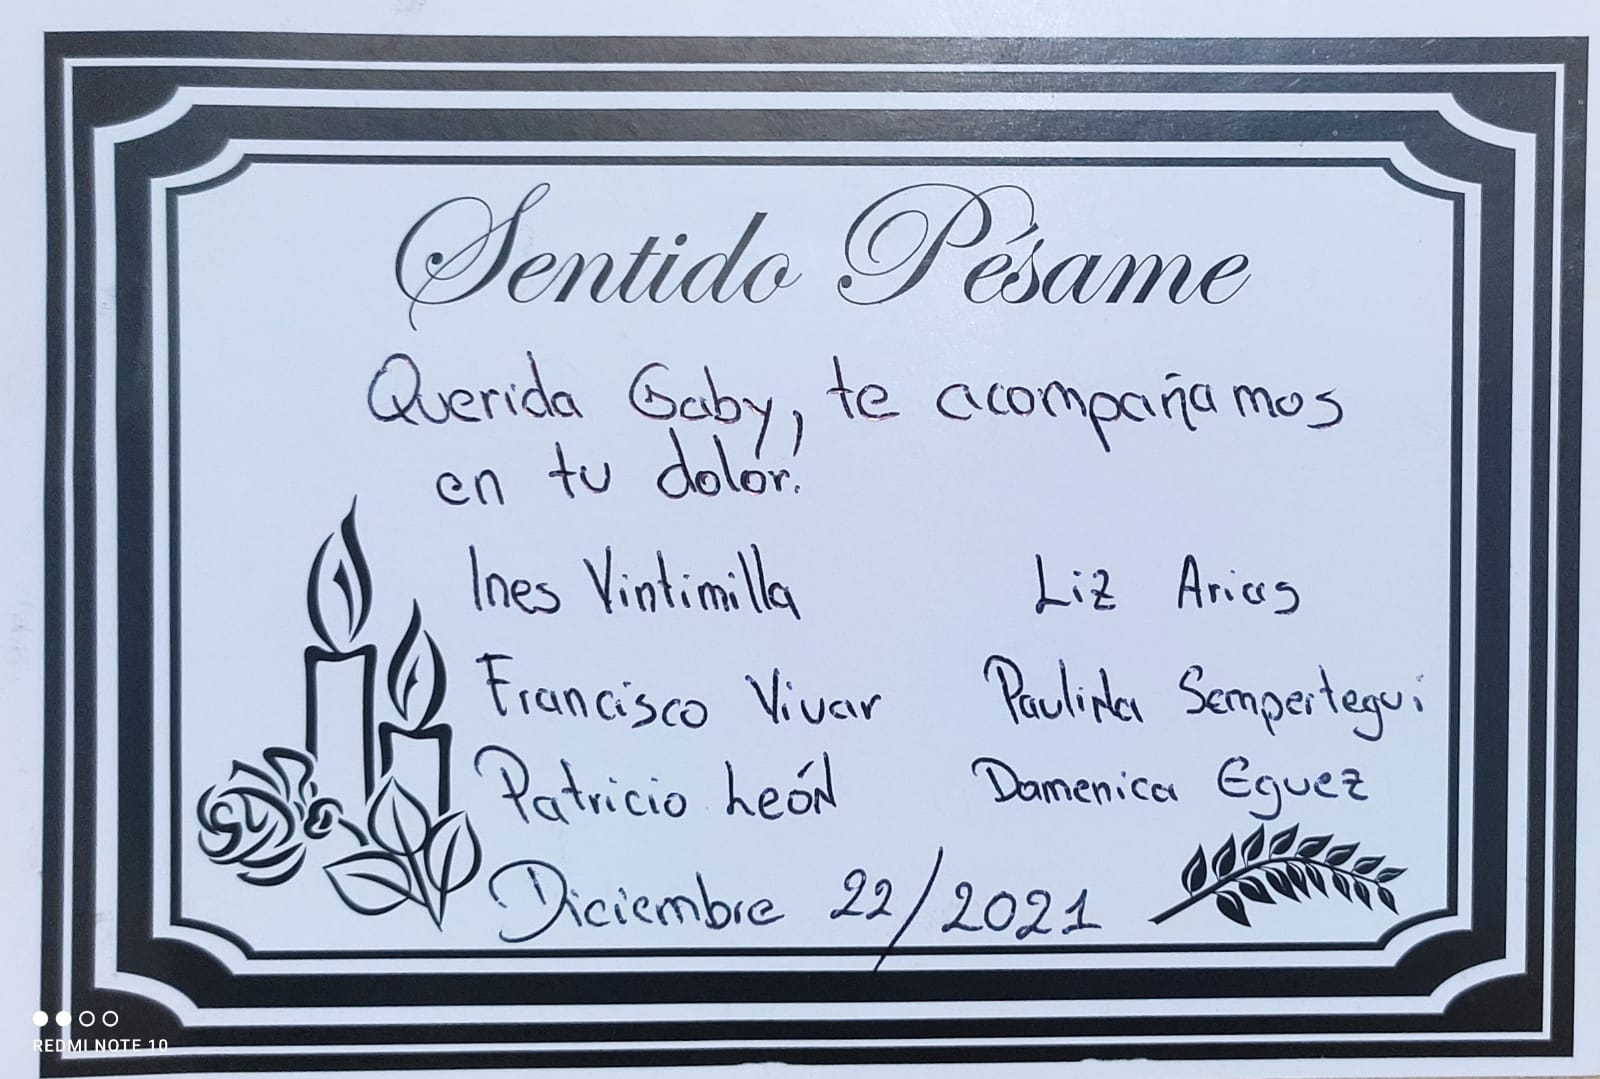 Sentido Pésame
Querida Gaby, te acompañamos
en tu dolor.
Ines Vintimilla Liz Arias
Francisco Vivar Paulina Sempertegui
Patricio León Domenica Eguez
Diciembre 22/2021
REDMI NOTE 10